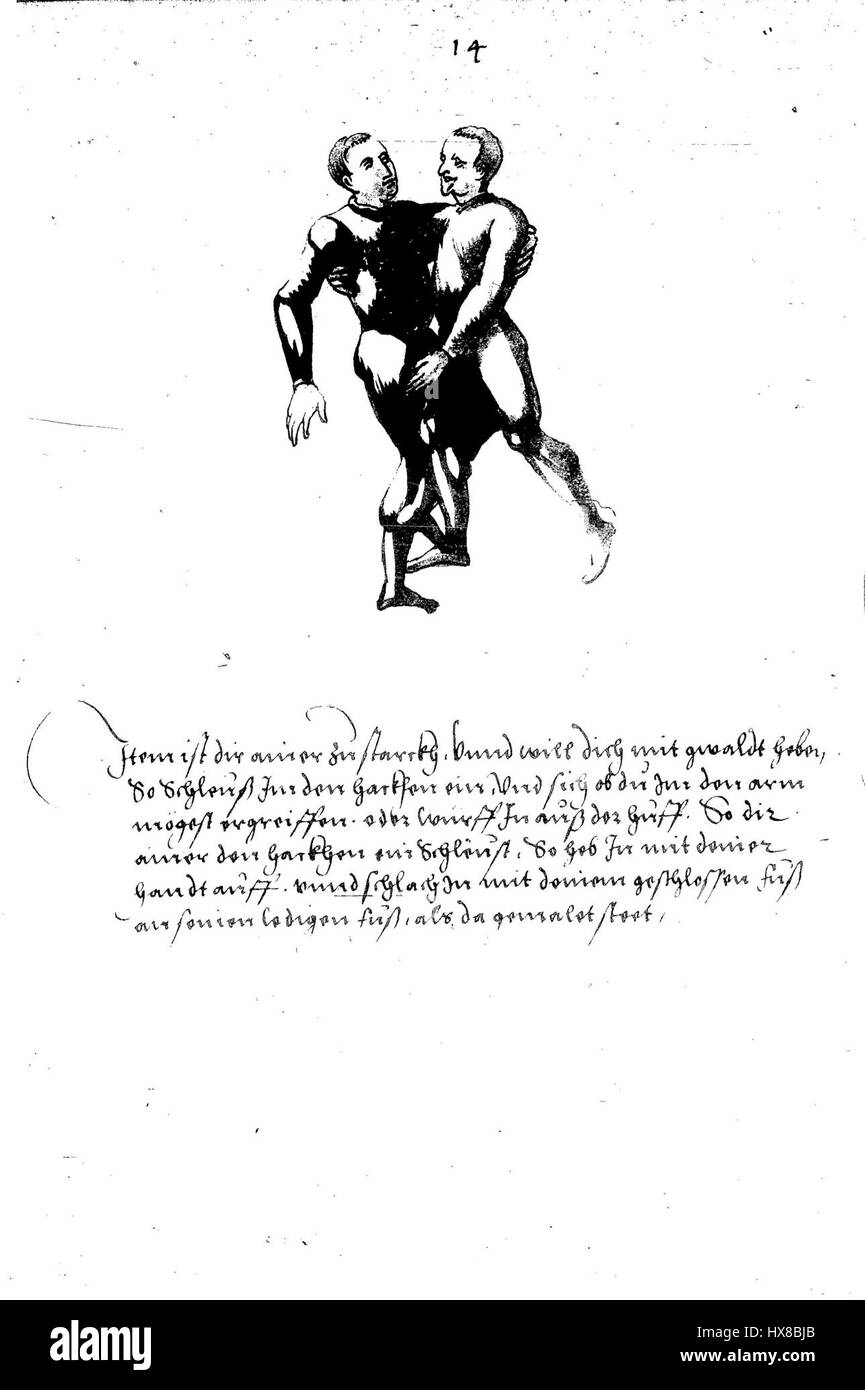 14
Item ist dir ainer zu starckh. Vnnd will dich mit gwaldt heben,
So Schleuß Im den hackhen ein, Vnd sich ob du Im den arm
mögest ergreiffen. oder Wurff In auß der huff. So dir
ainer den hackhen ein Schleust, So heb In mit deiner
handt auff. vnnd schlach In mit deinem geschlossen fuß
an seinen ledigen fuß, als da gemalet steet,
a
alamy stock photo
HX8BJB
www.alamy.com